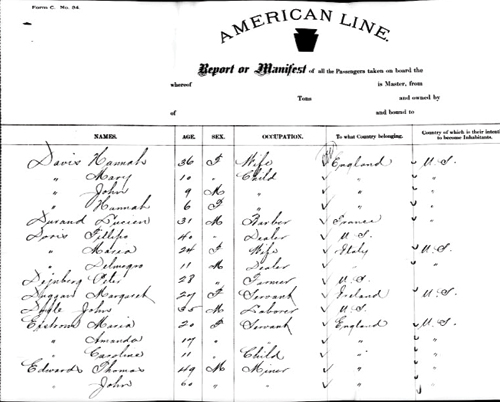 Form C. No. 24.
AMERICAN LINE.
Report or Manifest of all the Passengers taken on board the
whereof is Master, from
Tons and owned by
of and bound to
NAMES. AGE. SEX. OCCUPATION. To what Country belonging. Country of which is their intent
to become Inhabitants.
Davis Hannah 36 F Wife England U.S.
" Mary 10 " Child " "
" John 9 M " " "
" Hannah 6 F " " "
Durand Lucien 31 M Barber France "
Doris Fillipo 40 " Dealer U.S.
" Maria 24 F Wife Italy U.S.
" 11 M Dealer " "
Peter 28 " Farmer U.S.
Duggan Margaret 27 F Servant Ireland U.S.
Doyle John 35 M Laborer U.S.
Maria 20 F Servant England U.S.
" Amanda 17 " " "
" Caroline 11 " Child " "
Edwards Thomas 49 M Miner " "
" John 60 " " "